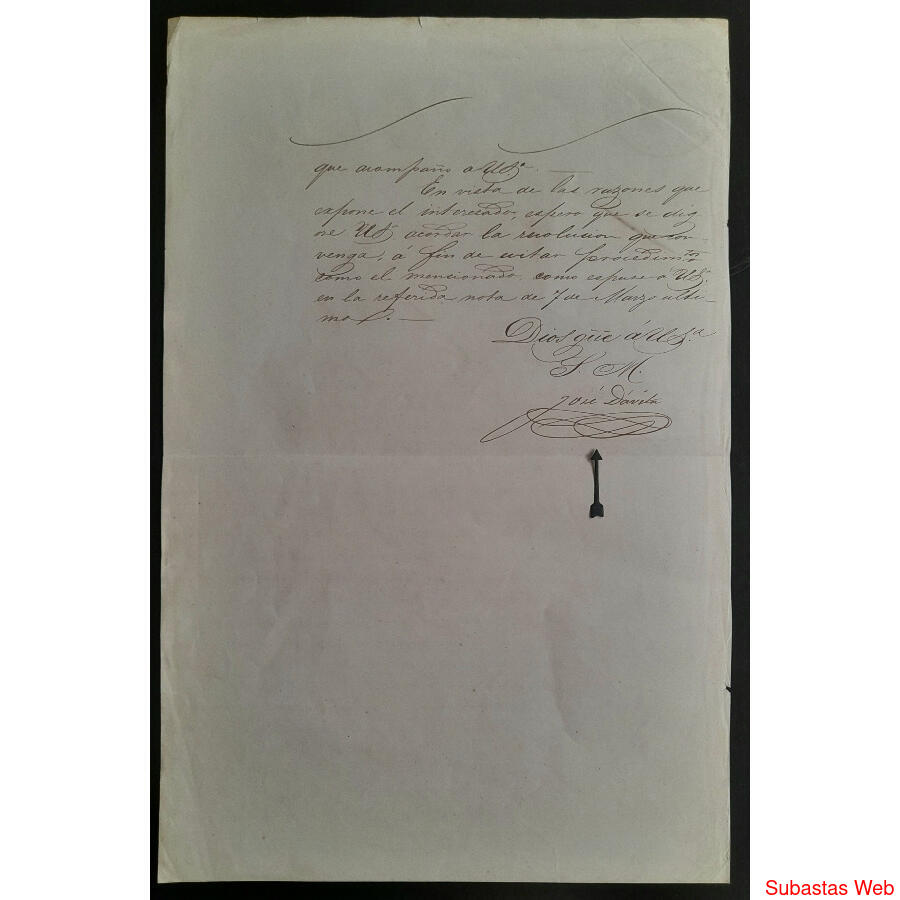 que acompaño a US.ª
En vista de las razones que
expone el interesado, espero que se dig
ne US. acordar la resolucion que con-
venga, á fin de evitar procedim.tos
como el mencionado, como espuse a US.
en la referida nota de 7 de Marzo ulti-
mo.
Dios güe á US.ª
S. M.
José Dávila
Subastas Web